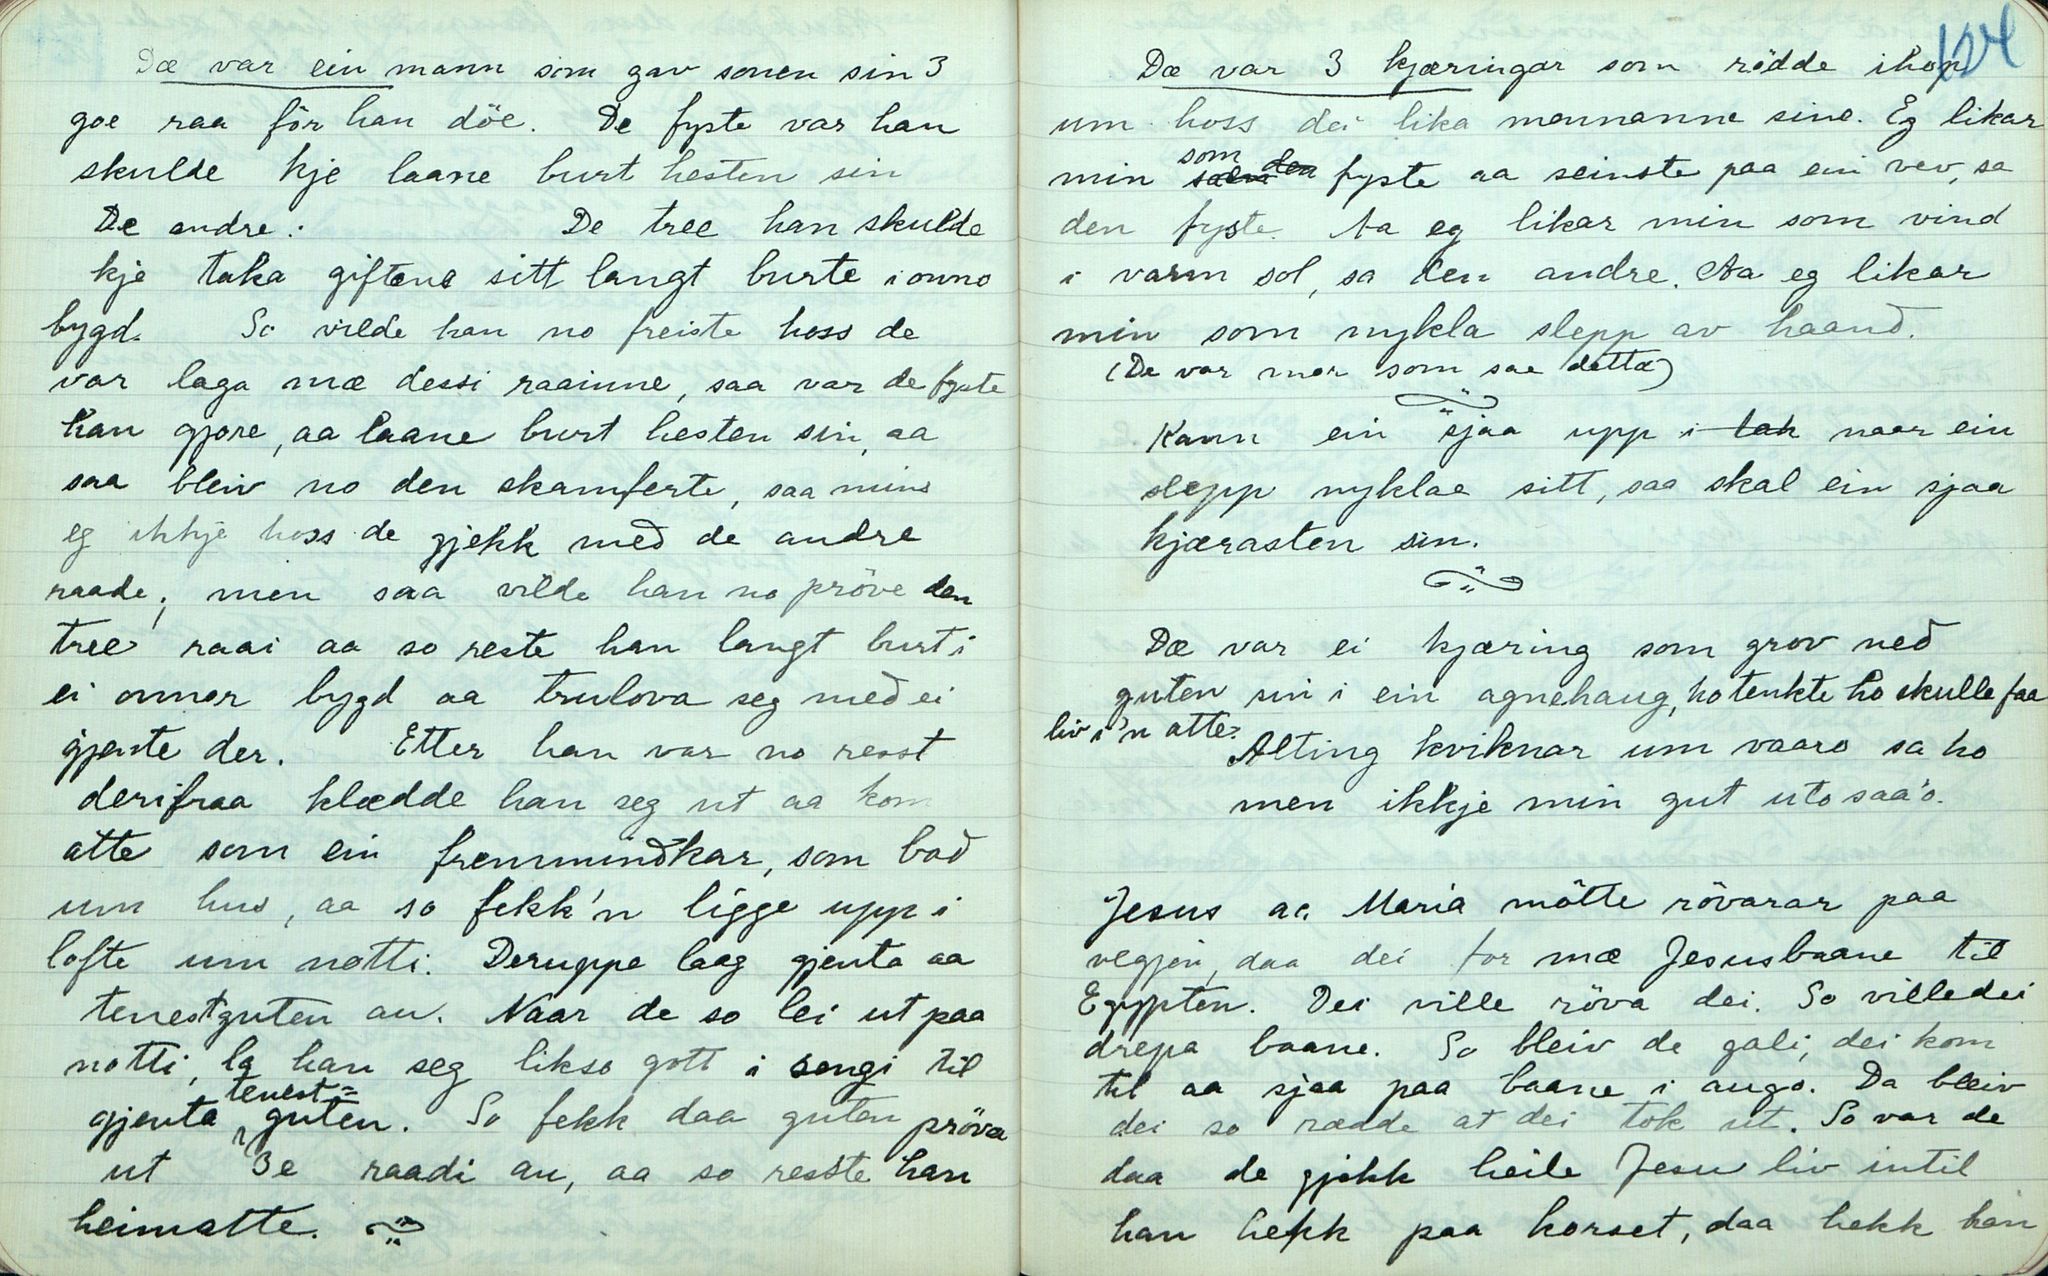 Dæ var ein mann som gav sonen sin 3
goe raa för han döe. De fyste var han
skulde kje laane burt hesten sin
De andre: De tree han skulde
kje taka giftene sitt langt burte i onno
bygd. So vilde han no freiste hoss de
var laga mæ dessi raainne, saa var de fyste
han gjore, aa laane burt hesten sin, aa
saa bleiv no den skamferte, saa mins
eg ikkje hoss de gjekk með de andre
raade; men saa vilde han no pröve den
tree raai aa so reste han langt burt i
ei onnor bygd aa trulova seg með ei
gjente der. Etter han var no resst
derifraa klædde han seg ut aa kom
atte som ein fremmundkar, som bað
um hus, aa so fekk'n ligge upp i
lofte um notti. Deruppe laag gjenta aa
tenestguten au. Naar de so lei ut paa
notti, la han seg likso gott i sengi til
gjenta tenest=guten. So fekk daa guten pröva
ut 3e raadi au, aa so resste han
heimatte.
124
Dæ var 3 kjæringar som rödde ihop
um hoss dei lika mennanne sine. Eg likar
min som den fyste aa seinste paa ein vev, sa
den fyste. Aa eg likar min som vind
i varm sol, sa den andre. Aa eg likar
min som nykla slepp av haand.
(De var mor som sae detta)
Kann ein sjaa upp i tak naar ein
slepp nyklae sitt, saa skal ein sjaa
kjærasten sin.
Dæ var ei kjæring som grov með
guten sin i ein agnehaug, ho tenkte ho skulle faa
liv i'n atte.
Alting kviknar um vaaro sa ho
men ikkje min gut uto saa'o.
Jesus aa Maria mötte rövarar paa
vegjen, daa dei for mæ Jesusbaane til
Egypten. Dei ville röva dei. So ville dei
drepa baane. So bleiv de gali, dei kom
til aa sjaa paa baane i augo. Da bleiv
dei so rædde at dei tok ut. So var de
daa de gjekk heile Jesu liv intil
han hekk paa korset, daa hekk han